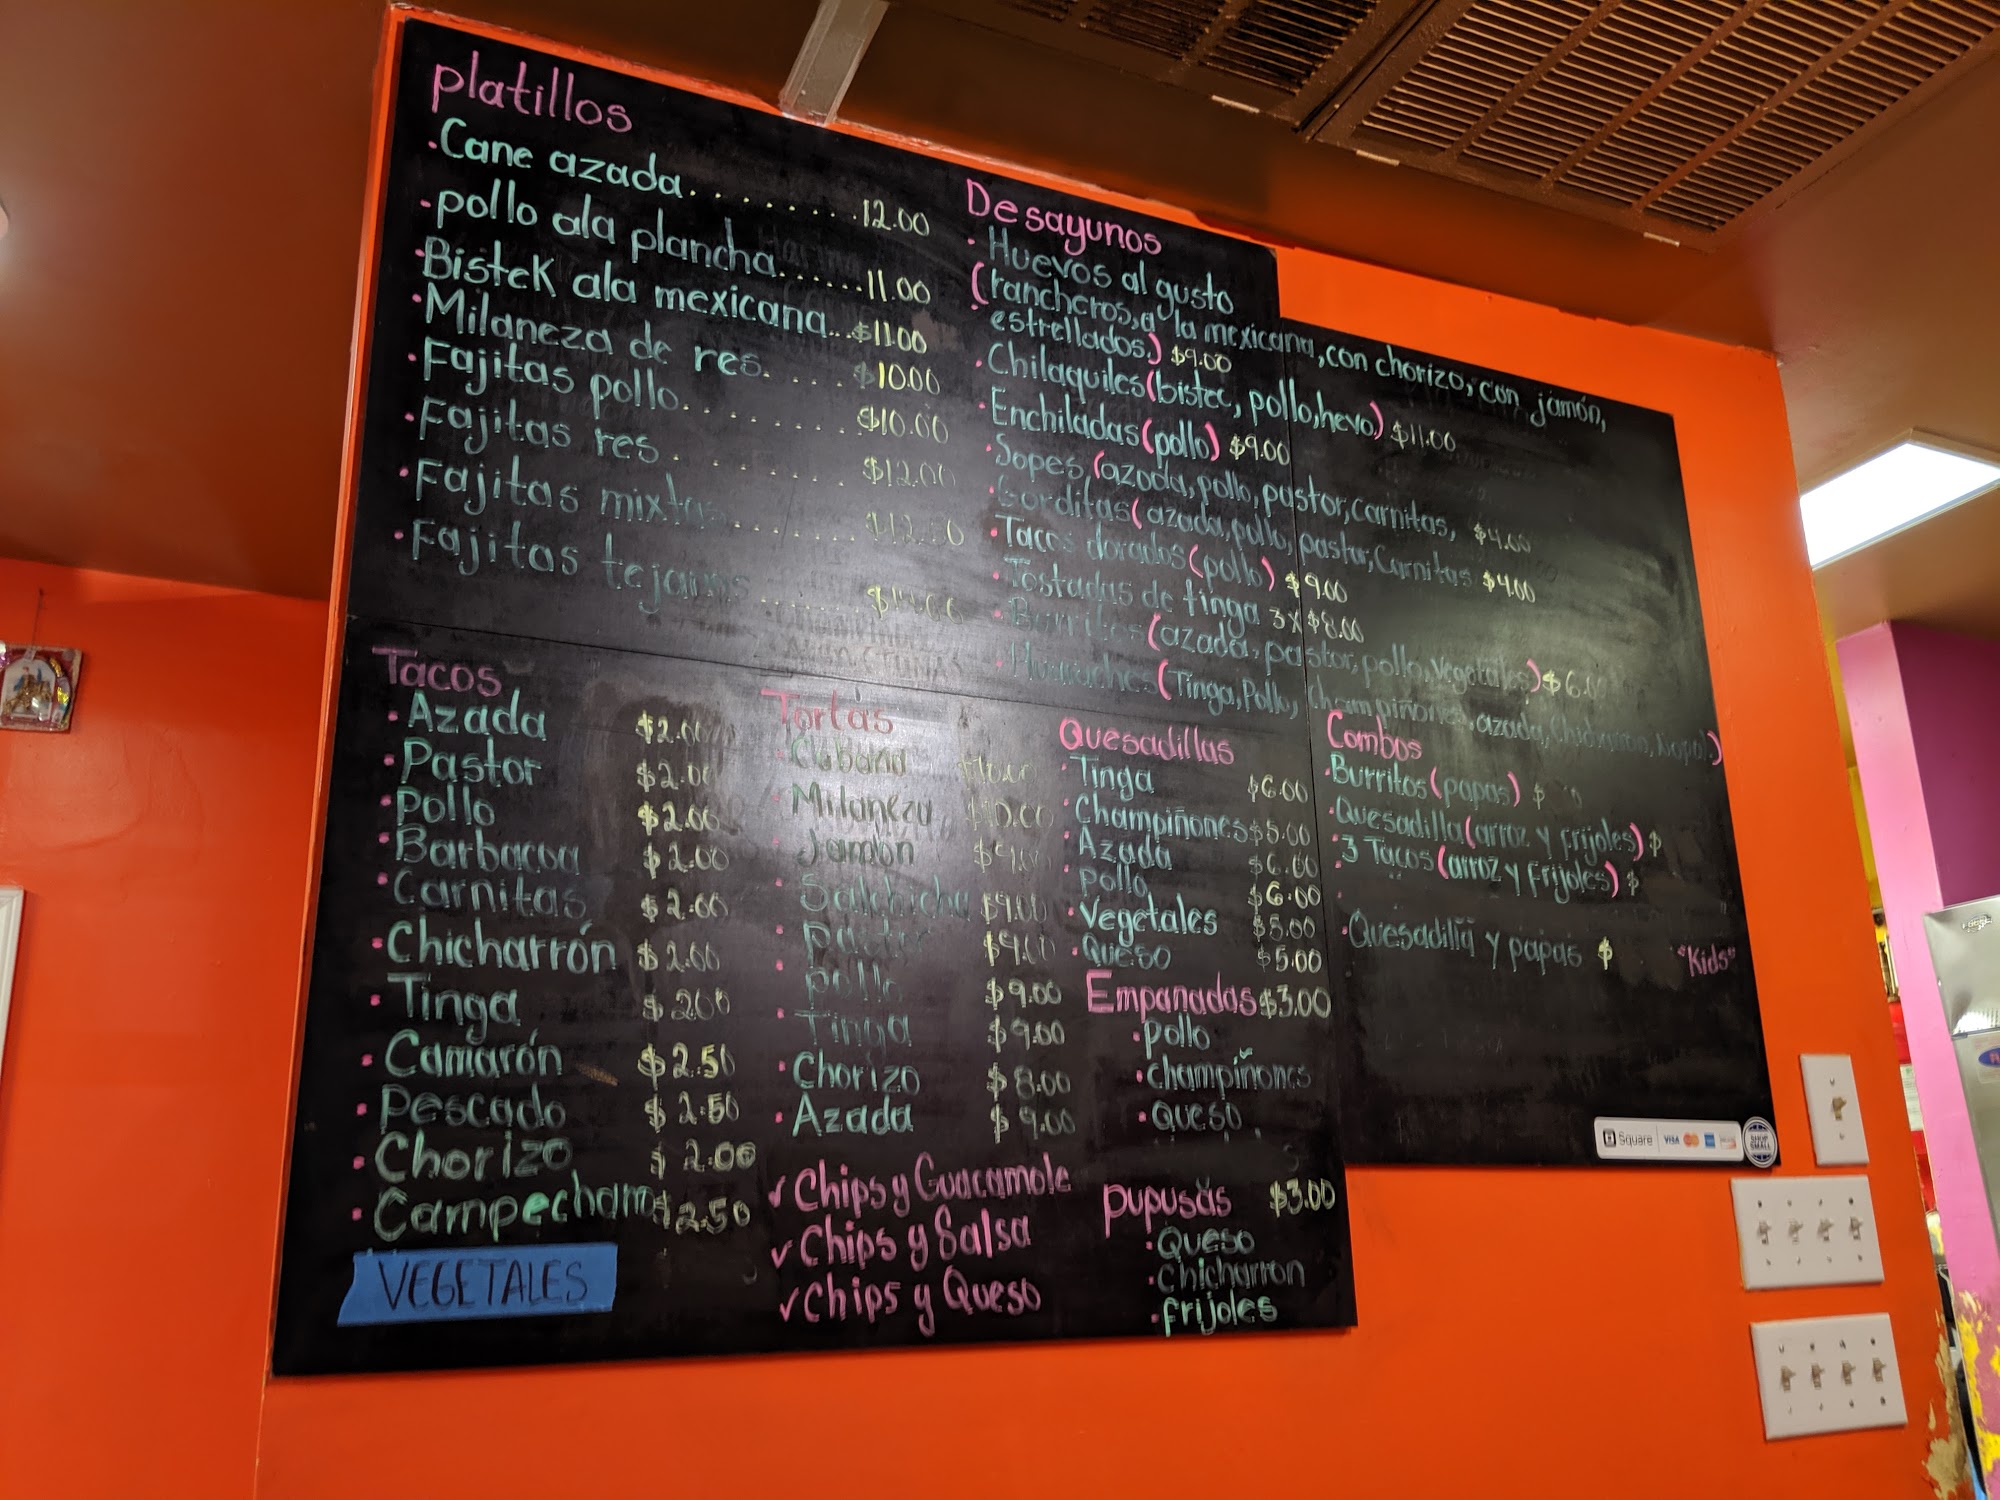 platillos
· Cane azada......... 12.00
· pollo ala plancha....... 11.00
· Bistek ala mexicana... $11.00
· Milaneza de res..... $10.00
· Fajitas pollo........ $10.00
· Fajitas res........ $12.00
· Fajitas mixtas........
· Fajitas tejanas
Desayunos
· Huevos al gusto
(rancheros, a la mexicana, con chorizo, con jamón,
estrellados.) $9.00
· Chilaquiles (bistec, pollo, hevo) $11.00
· Enchiladas (pollo) $9.00
· Sopes (azada, pollo, pastor, carnitas, $4.00
· Gorditas (azada, pollo, pastor, Carnitas $4.00
· Tacos dorados (pollo) $9.00
· Tostadas de tinga 3x $8.00
· Burritos (azada, pastor, pollo, vegetales) $6.00
· Huaraches (Tinga, Pollo, Champiñones, azada, Chicharron, Nopal)
Tacos
· Azada $2.00
· Pastor $2.00
· Pollo $2.00
· Barbacoa $2.00
· Carnitas $2.00
· Chicharrón $2.00
· Tinga $2.00
· Camarón $2.50
· Pescado $2.50
· Chorizo $2.00
· Campechano $2.50
VEGETALES
Tortas
· Cubana
· Milaneza $10.00
· Jamón $9.00
· Salchicha $9.00
· Pastor $9.00
· pollo $9.00
· Tinga $9.00
· Chorizo $8.00
· Azada $9.00
✓ Chips y Guacamole
✓ Chips y Salsa
✓ Chips y Queso
Quesadillas
· Tinga $6.00
· Champiñones $5.00
· Azada $6.00
· pollo $6.00
· Vegetales $5.00
· Queso $5.00
Empanadas $3.00
· pollo
· champiñones
· Queso
pupusas $3.00
· Queso
· Chicharron
· frijoles
Combos
· Burritos (papas) $
· Quesadilla (arroz y frijoles) $
· 3 Tacos (arroz y Frijoles) $
· Quesadilla y papas $ "Kids"
Square VISA
SHOP SMALL